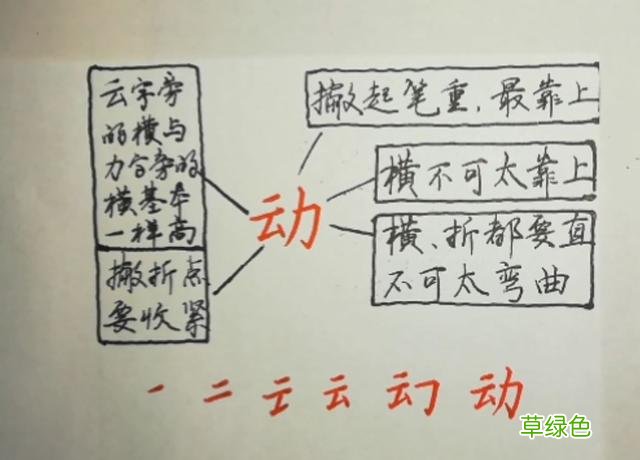 云字旁
的横与
力字旁的
横基本
一样高
撇折点
要收紧
动
撇起笔重,最靠上
横不可太靠上
横、折都要直
不可太弯曲
一 二 云 动
草绿色